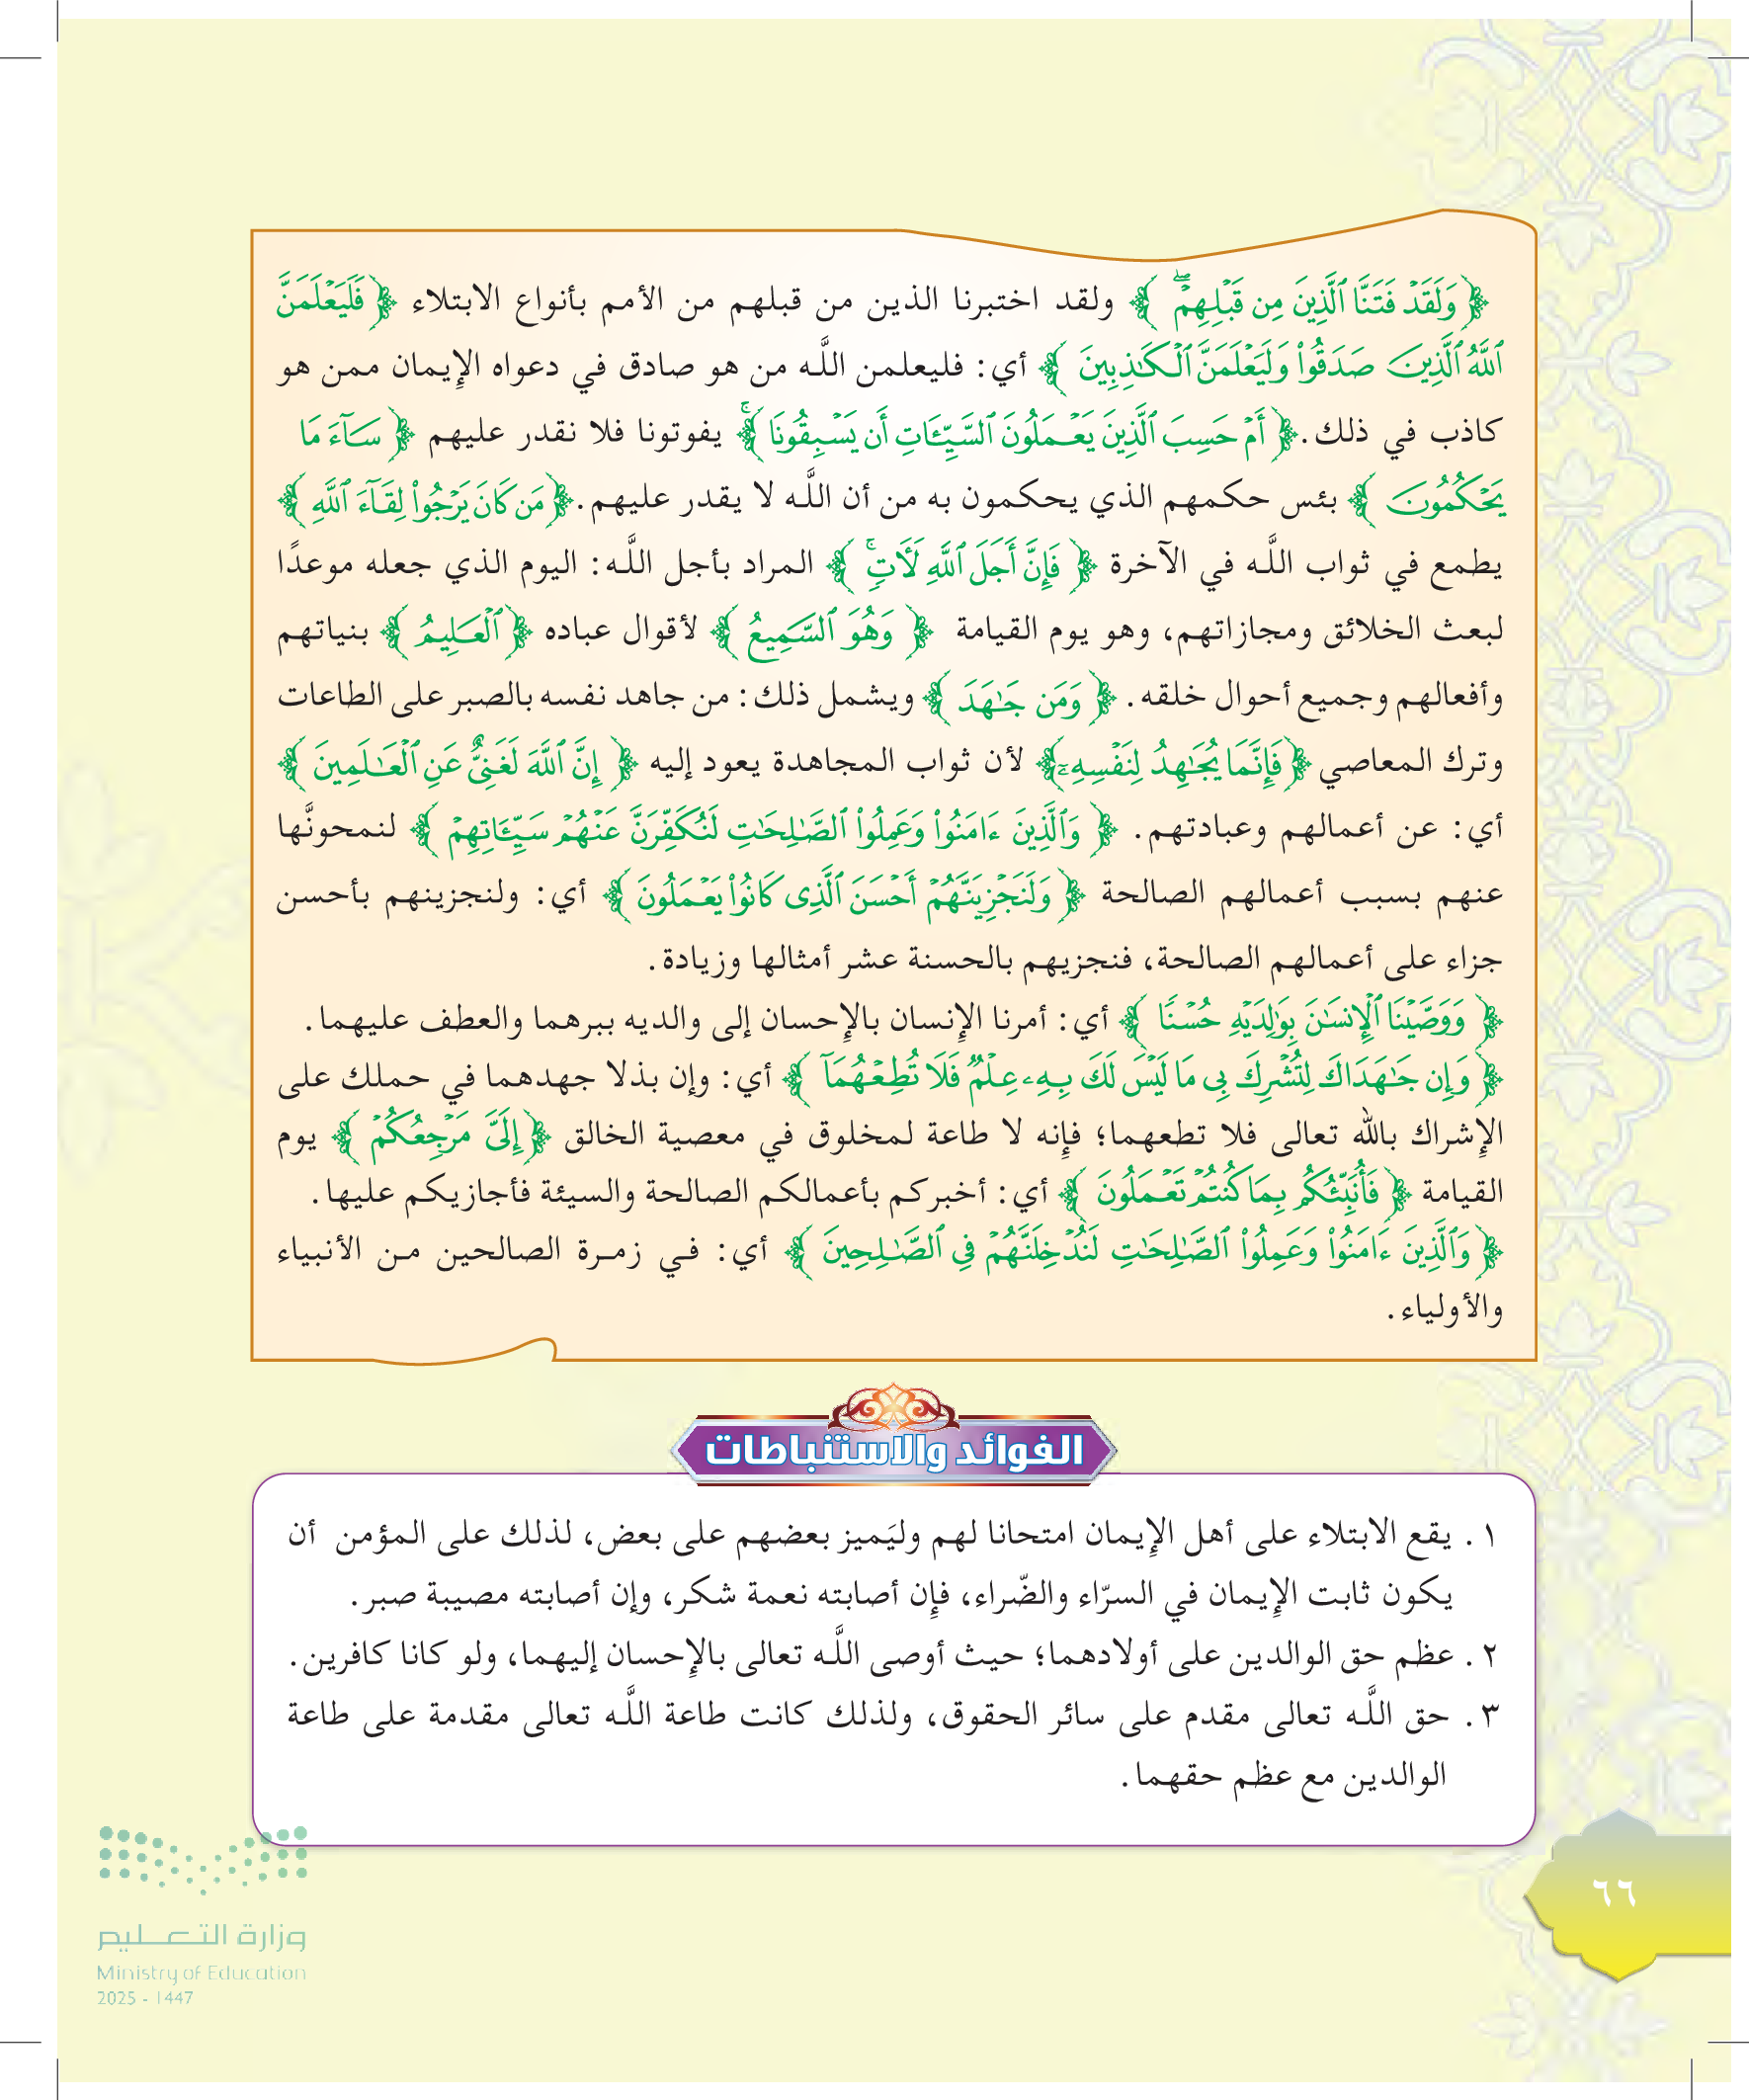 ﴿ وَلَقَدْ فَتَنَّا ٱلَّذِينَ مِن قَبْلِهِمْ ۖ ﴾ ولقد اختبرنا الذين من قبلهم من الأمم بأنواع الابتلاء ﴿ فَلَيَعْلَمَنَّ
ٱللَّهُ ٱلَّذِينَ صَدَقُوا۟ وَلَيَعْلَمَنَّ ٱلْكَـٰذِبِينَ ﴾ أي: فليعلمن اللَّه من هو صادق في دعواه الإيمان ممن هو
كاذب في ذلك. ﴿ أَمْ حَسِبَ ٱلَّذِينَ يَعْمَلُونَ ٱلسَّيِّـَٔاتِ أَن يَسْبِقُونَا ۚ ﴾ يفوتونا فلا نقدر عليهم ﴿ سَآءَ مَا
يَحْكُمُونَ ﴾ بئس حكمهم الذي يحكمون به من أن اللَّه لا يقدر عليهم. ﴿ مَن كَانَ يَرْجُوا۟ لِقَآءَ ٱللَّهِ ﴾
يطمع في ثواب اللَّه في الآخرة ﴿ فَإِنَّ أَجَلَ ٱللَّهِ لَـَٔاتٍ ۚ ﴾ المراد بأجل اللَّه: اليوم الذي جعله موعدًا
لبعث الخلائق ومجازاتهم، وهو يوم القيامة ﴿ وَهُوَ ٱلسَّمِيعُ ﴾ لأقوال عباده ﴿ ٱلْعَلِيمُ ﴾ بنياتهم
وأفعالهم وجميع أحوال خلقه. ﴿ وَمَن جَـٰهَدَ ﴾ ويشمل ذلك: من جاهد نفسه بالصبر على الطاعات
وترك المعاصي ﴿ فَإِنَّمَا يُجَـٰهِدُ لِنَفْسِهِۦٓ ﴾ لأن ثواب المجاهدة يعود إليه ﴿ إِنَّ ٱللَّهَ لَغَنِىٌّ عَنِ ٱلْعَـٰلَمِينَ ﴾
أي: عن أعمالهم وعبادتهم. ﴿ وَٱلَّذِينَ ءَامَنُوا۟ وَعَمِلُوا۟ ٱلصَّـٰلِحَـٰتِ لَنُكَفِّرَنَّ عَنْهُمْ سَيِّـَٔاتِهِمْ ﴾ لنمحونَّها
عنهم بسبب أعمالهم الصالحة ﴿ وَلَنَجْزِيَنَّهُمْ أَحْسَنَ ٱلَّذِى كَانُوا۟ يَعْمَلُونَ ﴾ أي: ولنجزينهم بأحسن
جزاء على أعمالهم الصالحة، فنجزيهم بالحسنة عشر أمثالها وزيادة.
﴿ وَوَصَّيْنَا ٱلْإِنسَـٰنَ بِوَٰلِدَيْهِ حُسْنًا ﴾ أي: أمرنا الإنسان بالإحسان إلى والديه ببرهما والعطف عليهما.
﴿ وَإِن جَـٰهَدَاكَ لِتُشْرِكَ بِى مَا لَيْسَ لَكَ بِهِۦ عِلْمٌ فَلَا تُطِعْهُمَآ ﴾ أي: وإن بذلا جهدهما في حملك على
الإشراك بالله تعالى فلا تطعهما؛ فإنه لا طاعة لمخلوق في معصية الخالق ﴿ إِلَىَّ مَرْجِعُكُمْ ﴾ يوم
القيامة ﴿ فَأُنَبِّئُكُم بِمَا كُنتُمْ تَعْمَلُونَ ﴾ أي: أخبركم بأعمالكم الصالحة والسيئة فأجازيكم عليها.
﴿ وَٱلَّذِينَ ءَامَنُوا۟ وَعَمِلُوا۟ ٱلصَّـٰلِحَـٰتِ لَنُدْخِلَنَّهُمْ فِى ٱلصَّـٰلِحِينَ ﴾ أي: في زمرة الصالحين من الأنبياء
والأولياء.
الفوائد والاستنباطات
١. يقع الابتلاء على أهل الإيمان امتحانا لهم وليَميز بعضهم على بعض، لذلك على المؤمن أن
يكون ثابت الإيمان في السرّاء والضّراء، فإن أصابته نعمة شكر، وإن أصابته مصيبة صبر.
٢. عظم حق الوالدين على أولادهما؛ حيث أوصى اللَّه تعالى بالإحسان إليهما، ولو كانا كافرين.
٣. حق اللَّه تعالى مقدم على سائر الحقوق، ولذلك كانت طاعة اللَّه تعالى مقدمة على طاعة
الوالدين مع عظم حقهما.
٦٦
وزارة التعليم
Ministry of Education
2025 - 1447